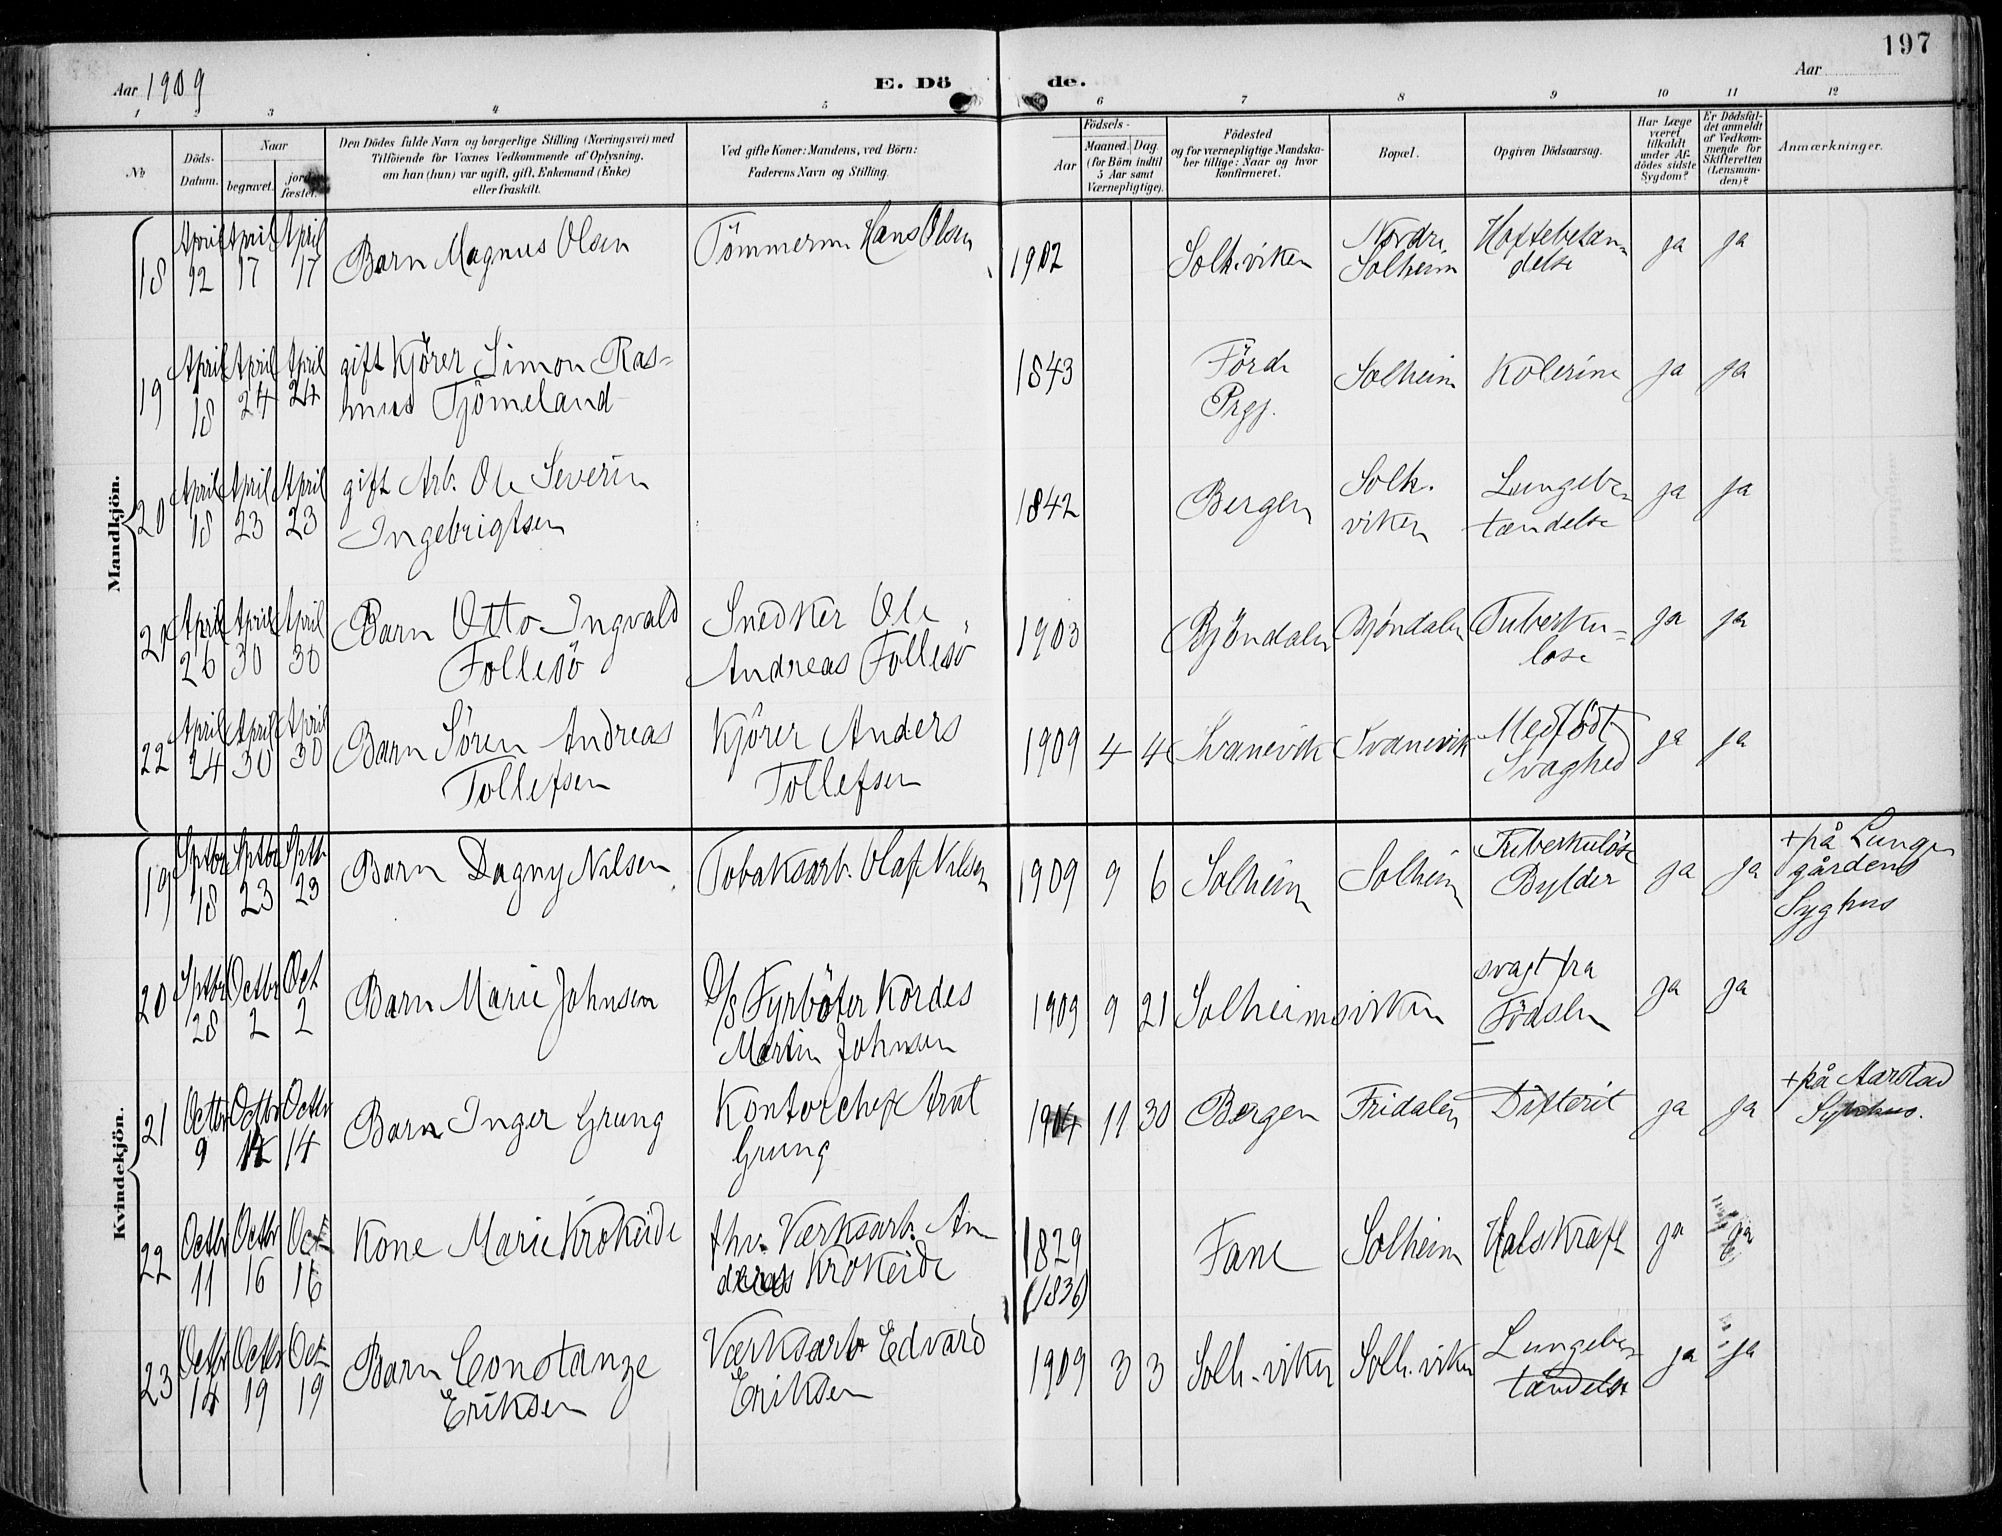 197
Aar 1909
E. Dö
de.
Aar
1 2 3 4 5 6 7 8 9 10 11 12
No
Döds-
Datum.
Naar
begravet.
jord-
fæstet.
Den Dödes fulde Navn og borgerlige Stilling (Næringsvei) med
Tilföiende for Voxnes Vedkommende af Oplysning,
om han (hun) var ugift, gift, Enkemand (Enke)
eller fraskilt.
Ved gifte Koner: Mandens, ved Börn:
Faderens Navn og Stilling.
Födsels-
Aar
Maaned. Dag.
(for Börn indtil
5 Aar samt
Værnepligtige).
Födested
og for værnepligtige Mandska-
ber tillige: Naar og hvor
konfirmeret.
Bopæl.
Opgiven Dödsaarsag.
Har Læge
været
tilkaldt
under Af-
dödes sidste
Sygdom?
Er Dödsfal-
det anmeldt
af Vedkom-
mende for
Skifteretten
(Lensman-
den)?
Anmærkninger.
Mandkjön.
18 April 12 April 17 April 17 Barn Magnus Olsen Tömmerm Hans Olsen 1902 Solh.viken Nordre Solheim Hoftebetændelse ja ja
19 April 18 April 24 April 24 gift Kjörer Simon Ras=
mus Tjömeland 1843 Förde
Prgj. Solheim Kolerine ja ja
20 April 18 April 23 April 23 gift Arb. Ole Severin
Ingebrigtsen 1842 Bergen Solh.
viken Lungebe=
tændelse ja ja
21 April 26 April 30 April 30 Barn Otto Ingvald
Follesö Snedker Ole
Andreas Follesö 1903 Bjöndalen Bjöndalen Tuberku=
lose ja ja
22 April 24 April 30 April 30 Barn Sören Andreas
Tollefsen Kjörer Anders
Tollefsen 1909 4 4 Svanevik Svanevik Medfödt
Svaghed ja ja
Kvindekjön.
19 Sptbr 18 Sptbr 23 Sptb 23 Barn Dagny Nilsen Tobaksarb. Olaf Nilsen 1909 9 6 Solheim Solheim Tuberkulöse
Bylder ja ja + på Lunge
gårdens
Syghus
20 Sptbr 28 Octbr 2 Oct 2 Barn Marie Johnsen D/S Fyrböter Kordes
Martin Johnsen 1909 9 21 Solheimsviken svagt fra
Födslen ja ja
21 Octbr 9 Octbr 14 Octbr 14 Barn Inger Grung Kontorchef Arnt
Grung 1904 11 30 Bergen Fridalen Difterit ja ja + på Aarstad
Syghus.
22 Octbr 11 Octbr 16 Oct 16 Kone Marie Krokeide fhv. Værksarb. An
dreas Krokeide 1829
(1836) Fane Solheim Halskræft ja ja
23 Octbr 14 Octbr 19 Oct 19 Barn Constanze
Eriksen Værksarb Edvard
Eriksen 1909 3 3 Solh.viken Solh.viken Lungebe=
tændelse ja ja